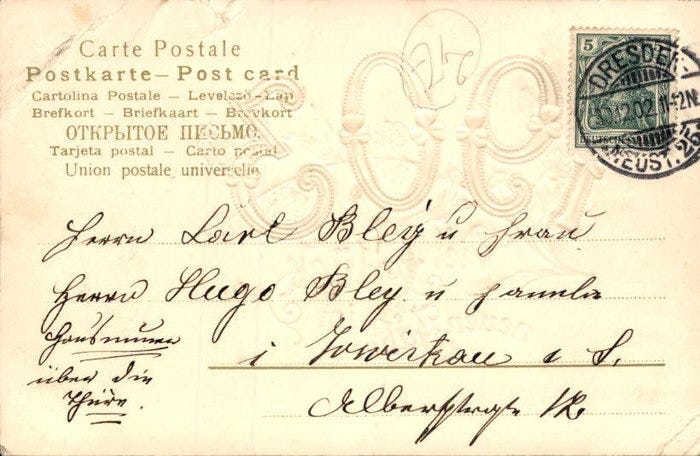 Carte Postale
Postkarte – Post card
Cartolina Postale – Levelező-Lap
Brefkort – Briefkaart – Brevkort
ОТКРЫТОЕ ПИСЬМО.
Tarjeta postal – Carto postal
Union postale universelle
24
5
DEUTSCHES
DRESDEN
30.12.02. 11-12N
NEUST. 26
1903
Herrn Carl Bley u Frau
Herrn Hugo Bley u Familie
i Zwickau i S.
Albertstraße 12
Hausnummer
über die
Thüre.